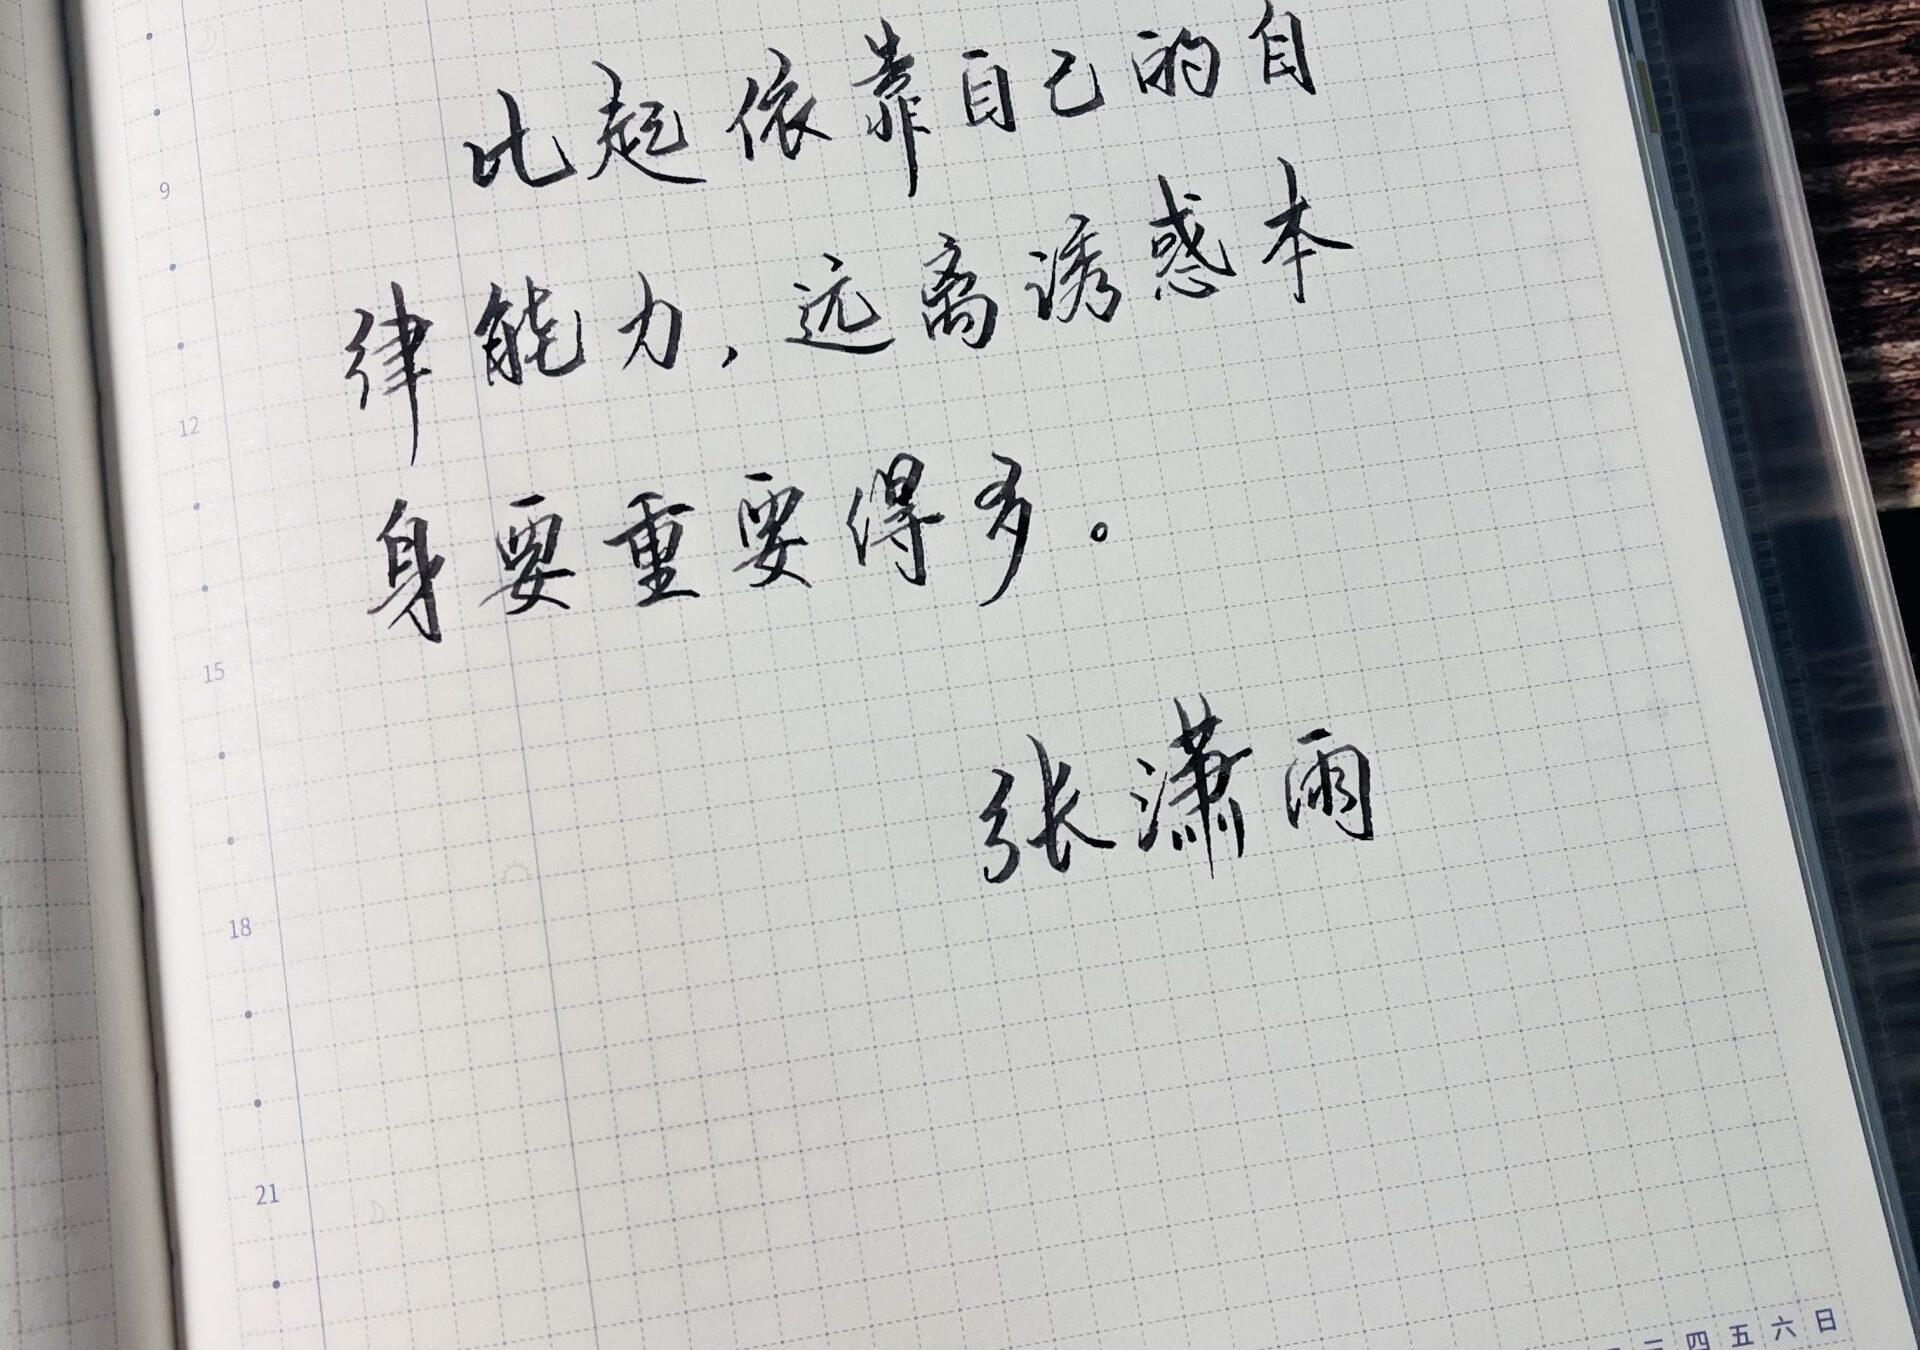 比起依靠自己的自
9
律能力，远离诱惑本
12
身要重要得多。
15
张潇雨
18
21
四 五 六 日